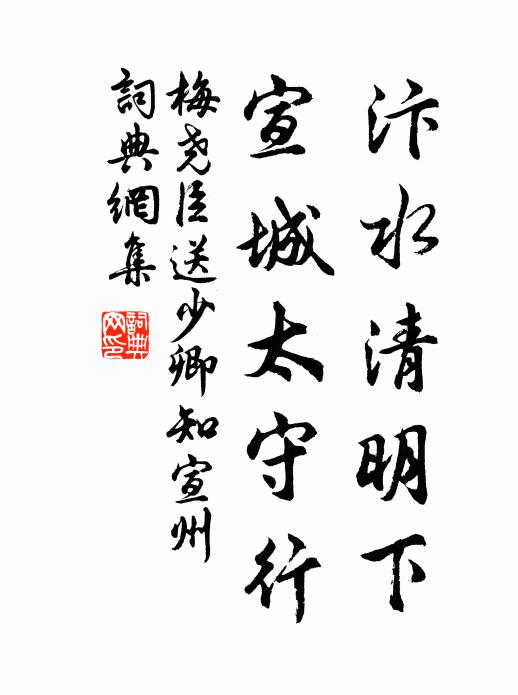 汴水清明下
宣城太守行
梅尧臣送少卿知宣州
詞典網集
詞典网印